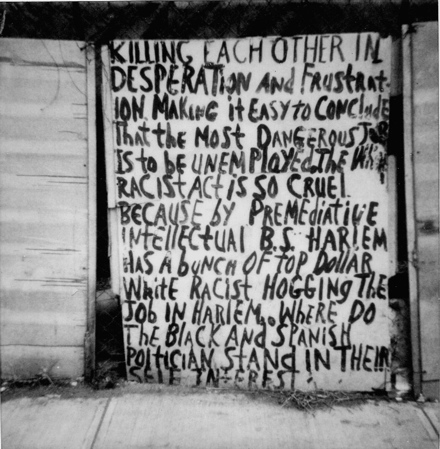 KILLING EACH OTHER IN
DESPERATION AND FRUSTRAT-
ION MAKING it EASY to CONCLUDE
That the MOST DANGEROUS JOB
IS to BE UNEMPLOYED. The WHI
RACIST ACT iS SO CRUEL
BECAUSE by PREMEDIATIVE
INTELLECTUAL B.S. HARLEM
HAS A bUNCH OF TOP DOLLAR
White RACIST HOGGING The
JOB IN HARLEM. WHERE DO
THE BLACK AND SPANISH
POLITICIAN STAND IN THEIR
SELF INTEREST